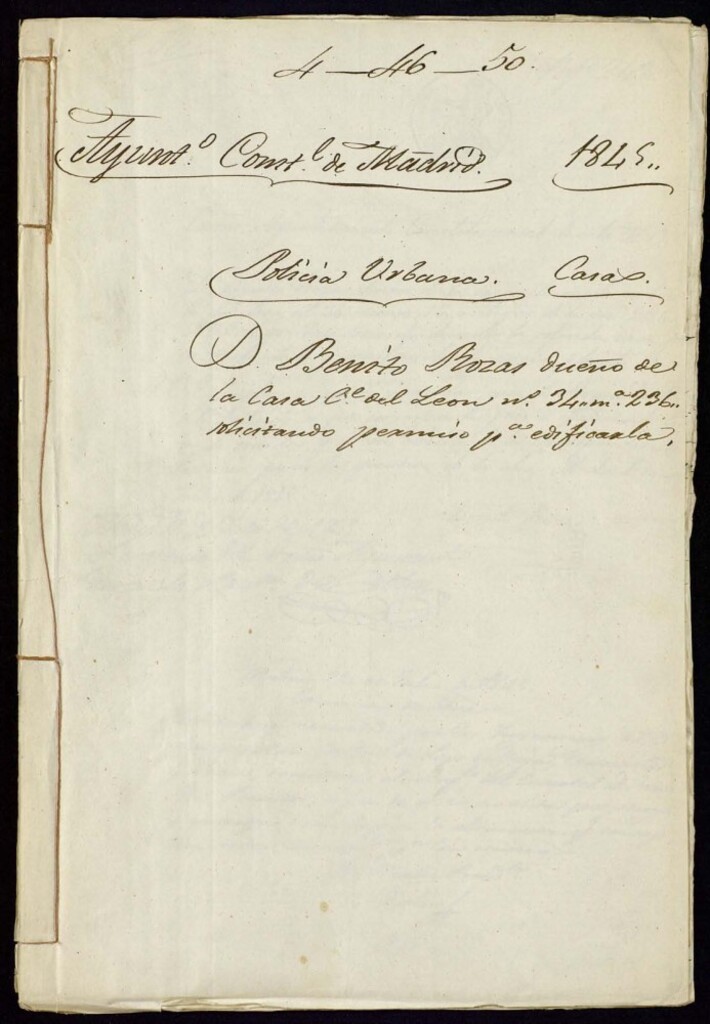 4 — 46 — 50.
Ayunt.º Const.l de Madrid. 1845..
Policia Urbana. Casas.
D. Benito Rozas dueño de
la Casa C.e del Leon n.º 34 m.a 236..
solicitando permiso p.a edificarla.